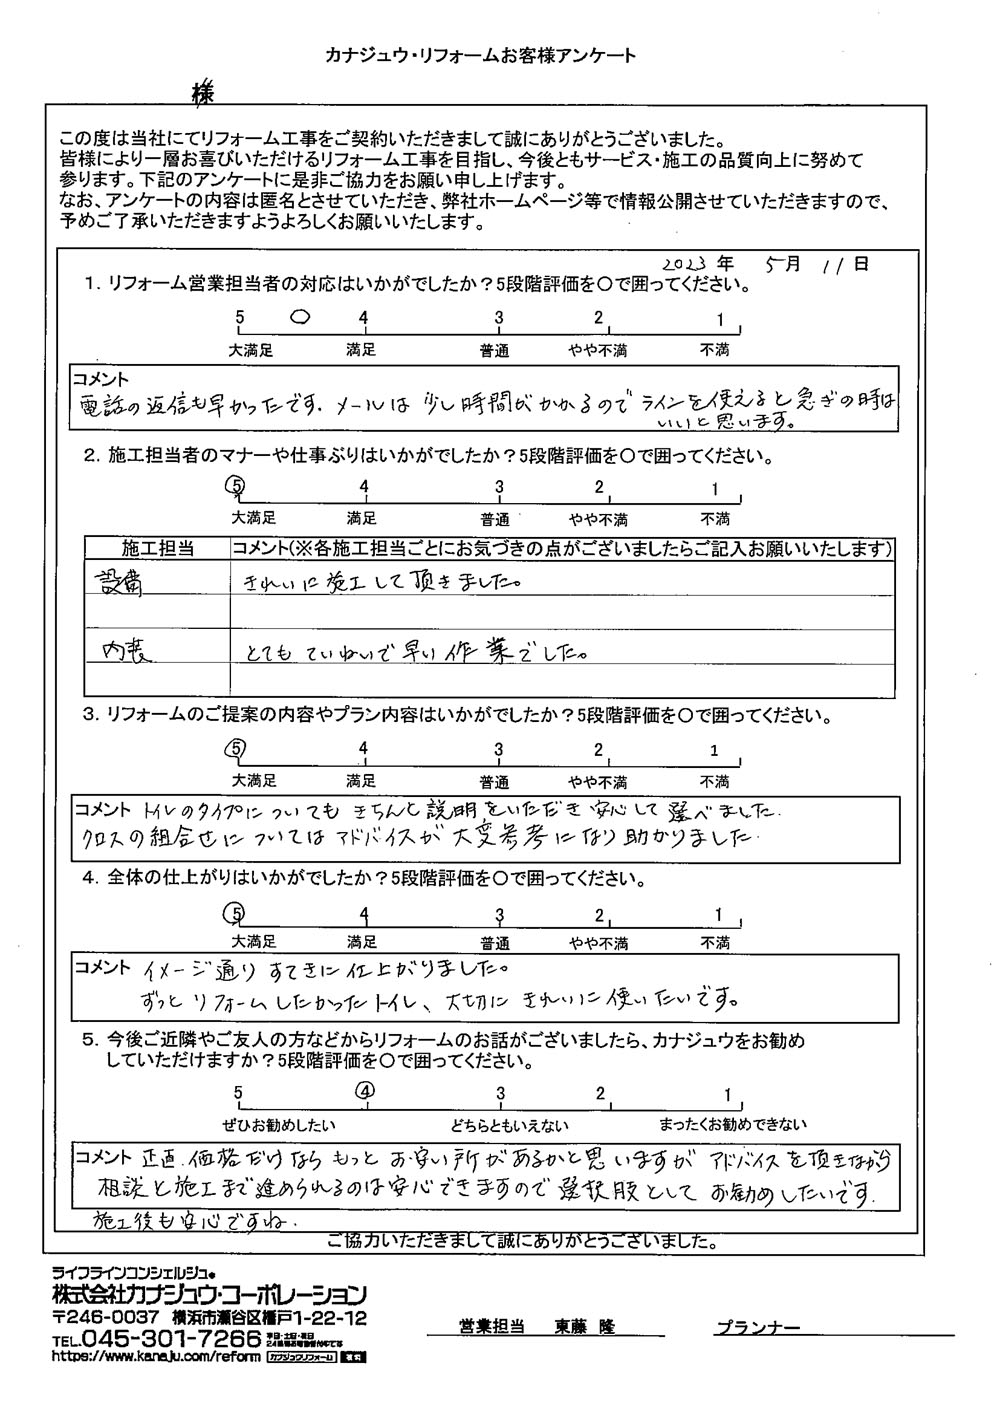 カナジュウ・リフォームお客様アンケート
様
この度は当社にてリフォーム工事をご契約いただきまして誠にありがとうございました。
皆様により一層お喜びいただけるリフォーム工事を目指し、今後ともサービス・施工の品質向上に努めて
参ります。下記のアンケートに是非ご協力をお願い申し上げます。
なお、アンケートの内容は匿名とさせていただき、弊社ホームページ等で情報公開させていただきますので、
予めご了承いただきますようよろしくお願いいたします。
2023年 5月 11日
1. リフォーム営業担当者の対応はいかがでしたか？5段階評価を〇で囲ってください。
5 〇 4 3 2 1
大満足 満足 普通 やや不満 不満
コメント
電話の返信も早かったです. メールは少し時間がかかるのでラインを使えると急ぎの時は
いいと思います。
2. 施工担当者のマナーや仕事ぶりはいかがでしたか？5段階評価を〇で囲ってください。
⑤ 4 3 2 1
大満足 満足 普通 やや不満 不満
施工担当 コメント(※各施工担当ごとにお気づきの点がございましたらご記入お願いいたします)
設備 きれいに施工して頂きました。
内装 とてもていねいで早い作業でした。
3. リフォームのご提案の内容やプラン内容はいかがでしたか？5段階評価を〇で囲ってください。
⑤ 4 3 2 1
大満足 満足 普通 やや不満 不満
コメント トイレのタイプについてもきちんと説明をいただき安心して選べました.
クロスの組合せについてはアドバイスが大変参考になり助かりました.
4. 全体の仕上がりはいかがでしたか？5段階評価を〇で囲ってください。
⑤ 4 3 2 1
大満足 満足 普通 やや不満 不満
コメント イメージ通りすてきに仕上がりました。
ずっとリフォームしたかったトイレ、大切にきれいに使いたいです。
5. 今後ご近隣やご友人の方などからリフォームのお話がございましたら、カナジュウをお勧め
していただけますか？5段階評価を〇で囲ってください。
5 ④ 3 2 1
ぜひお勧めしたい どちらともいえない まったくお勧めできない
コメント 正直.価格だけならもっとお安い所があるかと思いますがアドバイスを頂きながら
相談と施工まで進められるのは安心できますので選択肢としてお勧めしたいです.
施工後も安心ですね.
ご協力いただきまして誠にありがとうございました。
ライフラインコンシェルジュ
株式会社カナジュウ・コーポレーション
〒246-0037 横浜市瀬谷区橋戸1-22-12
TEL.045-301-7266 平日・土日・祝日
https://www.kanaju.com/reform カナジュウリフォーム 検索
営業担当 東藤 隆 プランナー